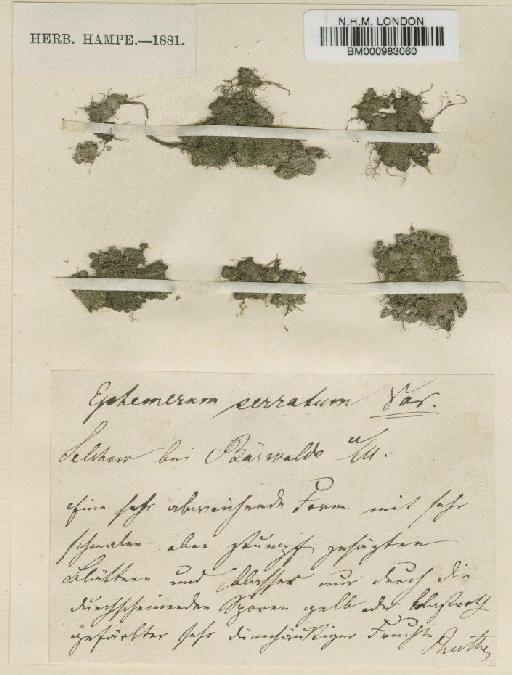 HERB. HAMPE.—1881.
N.H.M. LONDON
BM000983060
Ephemerum serratum Var.
Selchow bei Bärwalde
Eine sehr abweichende Form mit sehr
schmalen aber stumpf gesägten
Blättern und blasser nur durch die
durchscheinenden Sporen gelb oder blassroth
gefärbter sehr dünnhäutiger Frucht
Ruthe